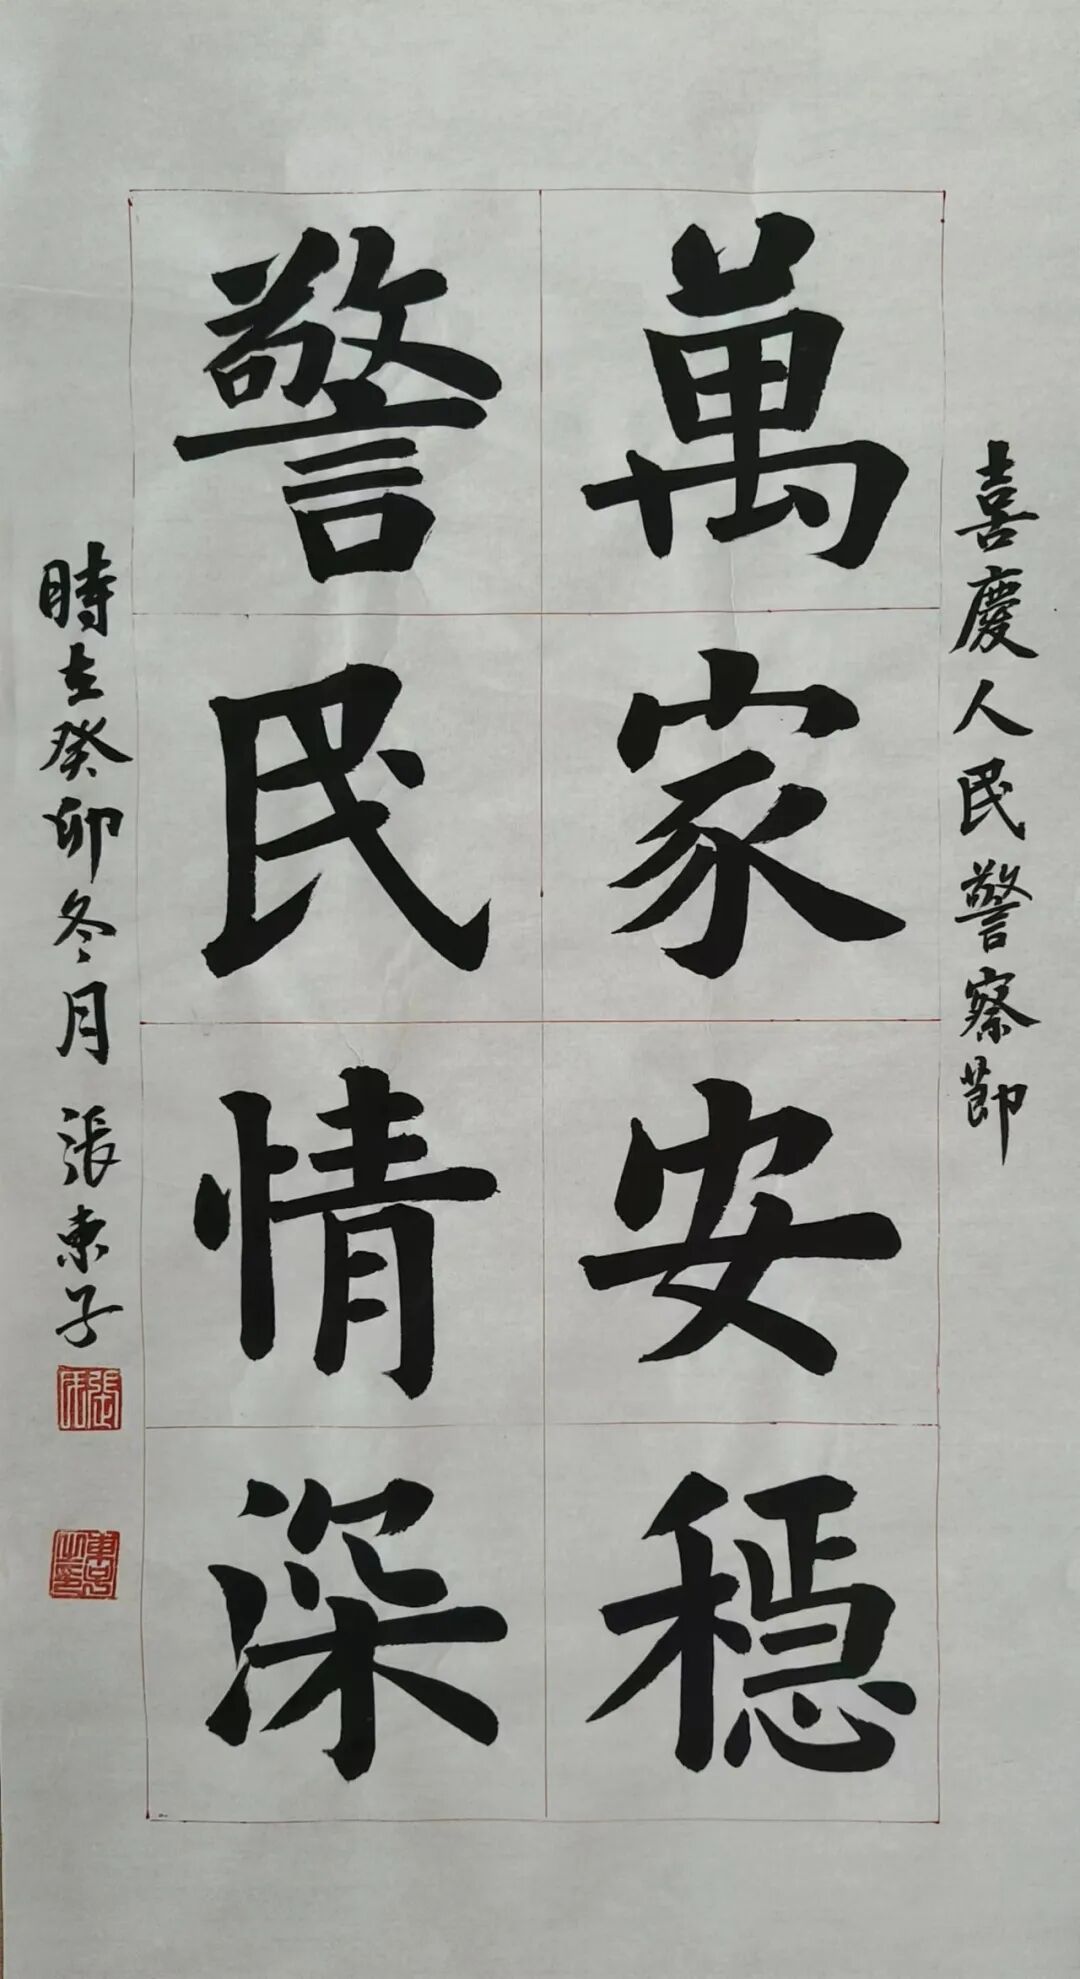 喜慶人民警察節
萬家安穩
警民情深
時在癸卯冬月張東子